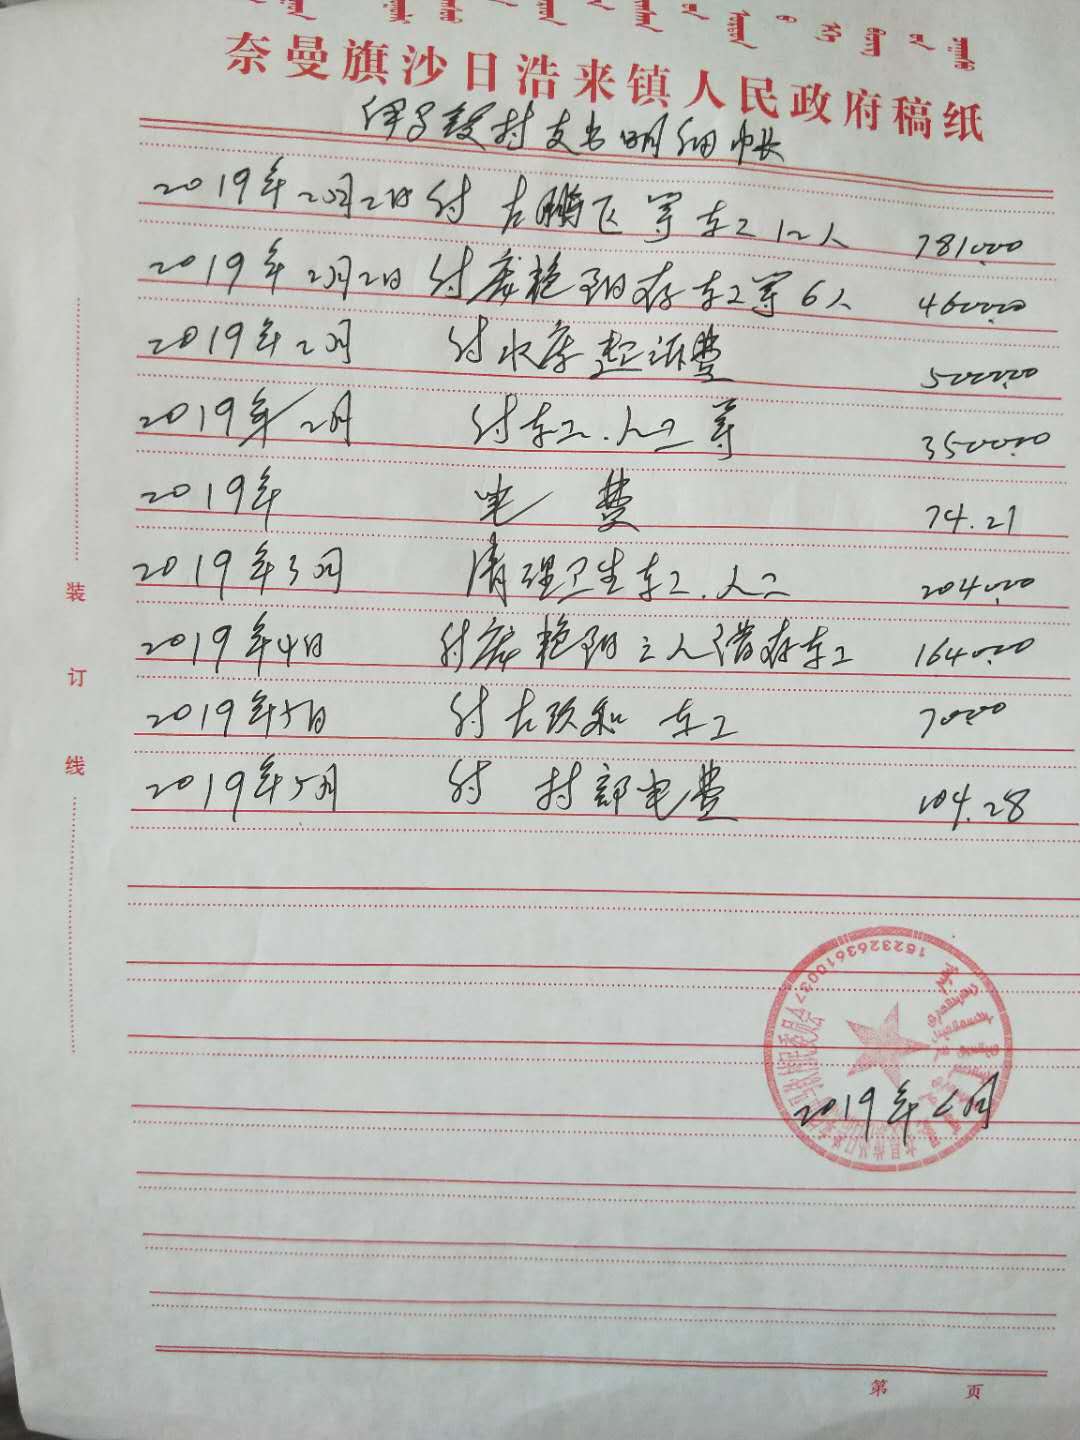 奈曼旗沙日浩来镇人民政府稿纸
村支出明细帐
2019年2月2日付 左鹏飞等车工12人 7810.00
2019年2月2日付 艳阳存车工等6人 4600.00
2019年2月 付水库起诉费 5000.00
2019年2月 付车工.人工等 3500.00
2019年 电费 74.21
2019年3月 清理卫生车工.人工 2040.00
2019年4日 付 艳阳三人 存车工 1640.00
2019年5日 付左 和 车工 70.00
2019年5月 付 村部电费 104.28
装
订
线
1523263610037
村民委员会
2019年6月
第 页